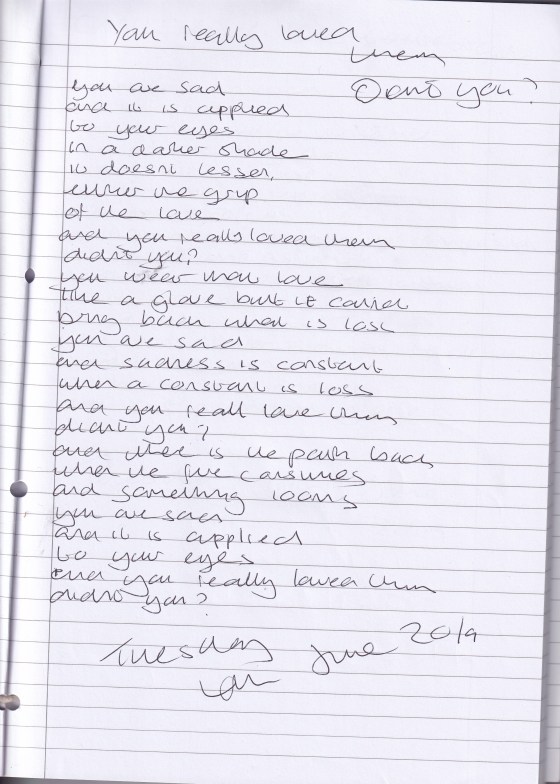 You really loved
them
Didn't you?
you are sad
and it is applied
to your eyes
in a darker shade
it doesn't lessen,
either the grip
of the love
and you really loved them
didn't you?
you wear that love
like a glove but it cannot
bring back what is lost
you are sad
and sadness is constant
when a constant is loss
and you reall love them
didn't you?
and where is the path back
when the fire consumes
and something looms
you are sad
and it is applied
to your eyes
and you really loved them
didn't you?
Tuesday June 2019